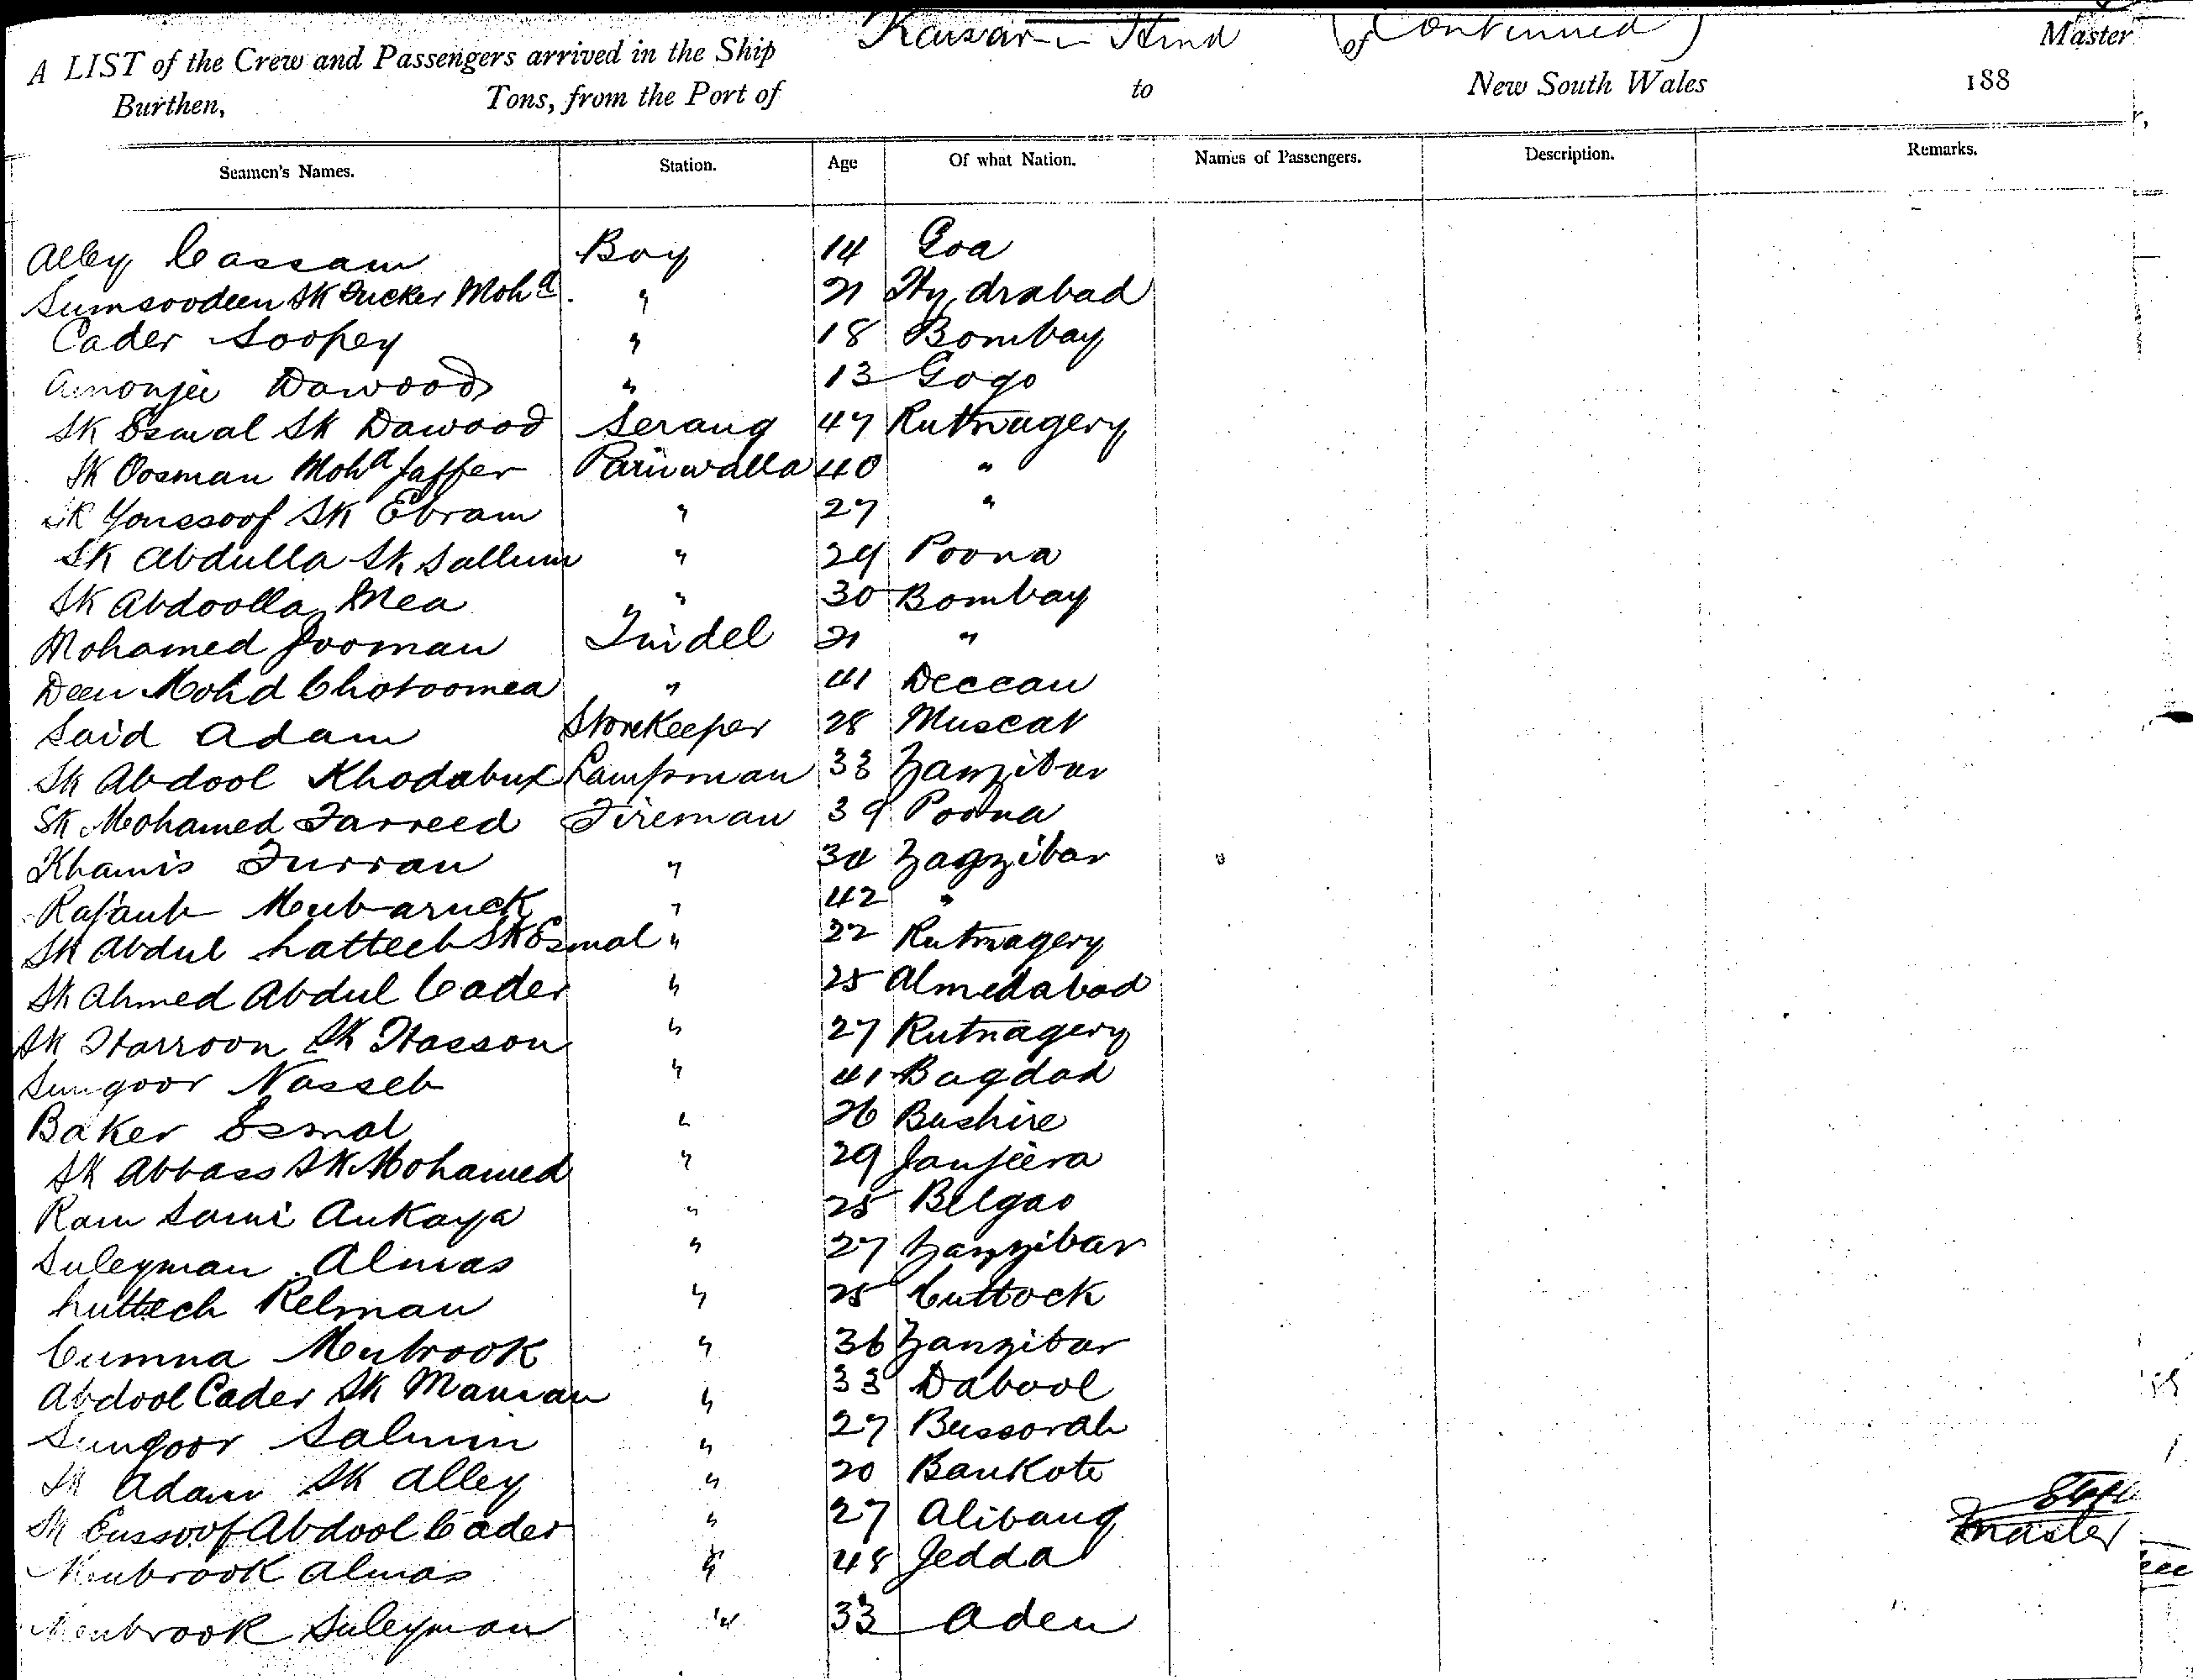 Kaisar-i-Hind (Continued)
A LIST of the Crew and Passengers arrived in the Ship of Master
Burthen, Tons, from the Port of to New South Wales 188
Seamen's Names. Station. Age Of what Nation. Names of Passengers. Description. Remarks.
Alley Cassam Boy 14 Goa
Sumsoodeen Sk Tucker Mohd. " 21 Hydrabad
Cader Soopey " 18 Bombay
Amonjee Dawood " 13 Gogo
Sk Esmal Sk Dawood Serang 47 Rutnagery
Sk Oosman Mohd Jaffer Paniwalla 40 "
Sk Youssoof Sk Ebram " 27 "
Sk Abdulla Sk Sallum " 29 Poona
Sk Abdoolla Mea " 30 Bombay
Mohamed Jooman Tindel 21 "
Deen Mohd Chotoomea " 41 Deccan
Said Adam Storekeeper 28 Muscat
Sk Abdool Khodabux Lampman 33 Zanzibar
Sk Mohamed Farreed Fireman 39 Poona
Khamis Furran " 30 Zanzibar
Rajaub Mubaruck " 42 "
Sk Abdul Latteeb Sk Esmal " 22 Rutnagery
Sk Ahmed Abdul Cader " 25 Almedabad
Sk Harroon Sk Hasson " 27 Rutnagery
Sungoor Nasseb " 41 Bagdad
Baker Esmal " 26 Bushire
Sk Abbass Sk Mohamed " 29 Janjeera
Ram Sami Ankaya " 25 Belgao
Suleyman Almas " 27 Zanzibar
Relman " 25 Cuttock
Cumna Mubrook " 36 Zanzibar
Abdool Cader Sk Maman " 33 Dabool
Sungoor Salmin " 27 Bussorah
Sk Adam Sk Alley " 20 Bankote
Sk Eussoof Abdool Cader " 27 Alibaug
Mubrook Almas " 48 Jedda
Mubrook Suleyman " 33 Aden
Master